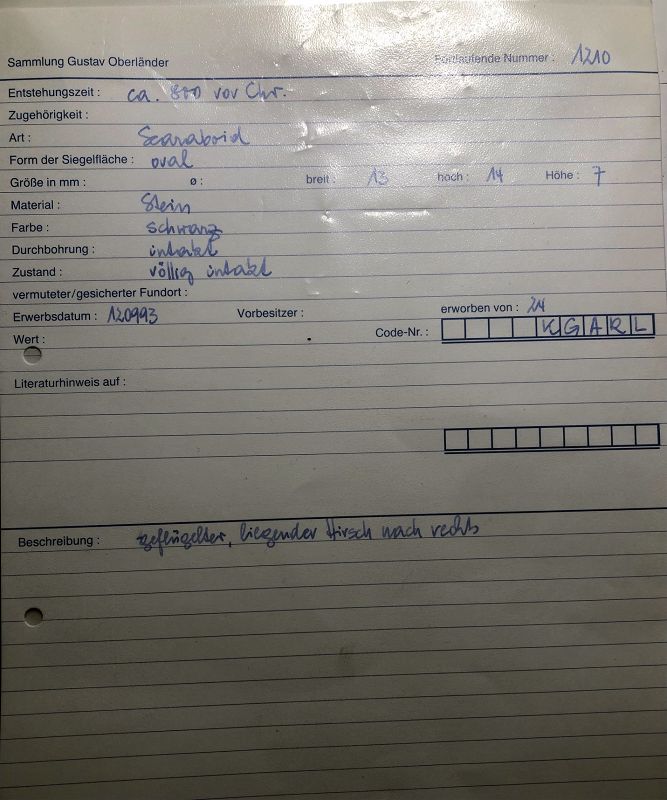 Sammlung Gustav Oberländer Fortlaufende Nummer : 1210
Entstehungszeit : ca. 800 vor Chr.
Zugehörigkeit :
Art : Scaraboid
Form der Siegelfläche : oval
Größe in mm : ø : breit : 13 hoch : 14 Höhe : 7
Material : Stein
Farbe : schwarz
Durchbohrung : intakt
Zustand : völlig intakt
vermuteter/gesicherter Fundort :
Erwerbsdatum : 120993 Vorbesitzer : erworben von : 24
Wert : Code-Nr. : KGARL
Literaturhinweis auf :
Beschreibung : geflügelter, liegender Hirsch nach rechts